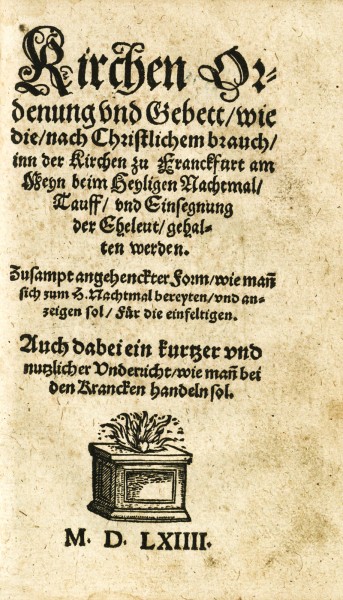 Kirchen Or⸗
denung vnd Gebett/ wie
die/ nach Christlichem brauch/
inn der Kirchen zu Franckfurt am
Meyn beim Heyligen Nachtmal/
Tauff/ vnd Einsegnung
der Eheleut/ gehal⸗
ten werden.
Zusampt angehenckter Form/ wie mañ
sich zum H. Nachtmal bereyten/ vnd an⸗
zeigen sol/ Für die einfeltigen.
Auch dabei ein kurtzer vnd
nutzlicher Vnderricht/ wie mañ bei
den Krancken handeln sol.
M. D. LXIIII.